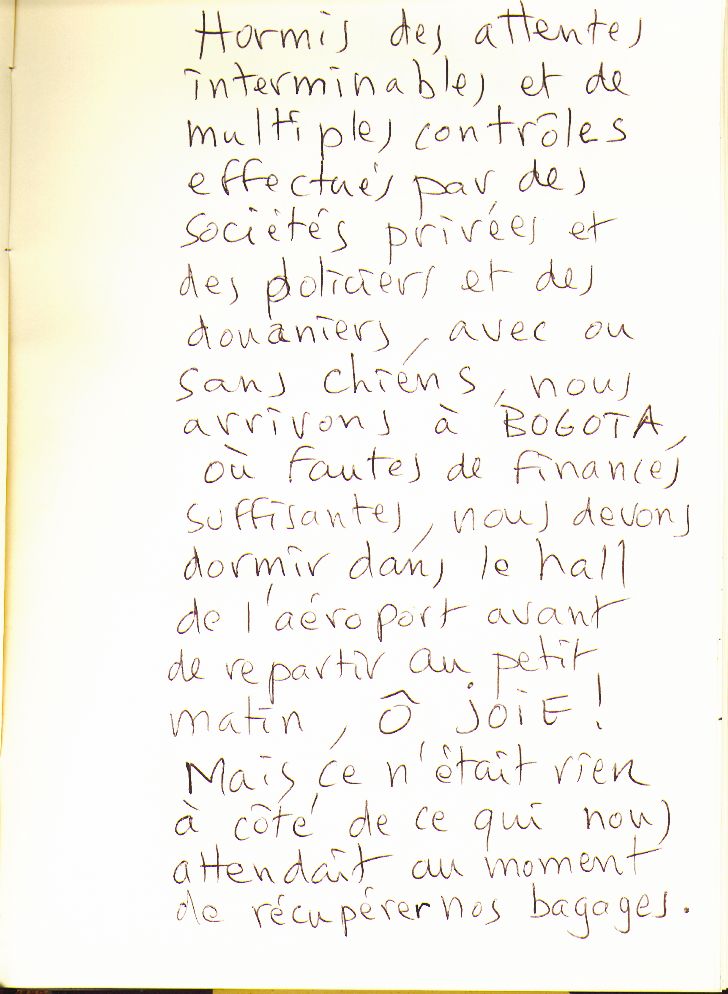 Hormis des attentes
interminables et de
multiples contrôles
effectués par des
sociétés privées et
des policiers et des
douaniers, avec ou
sans chiens, nous
arrivons à BOGOTA,
où fautes de finances
suffisantes, nous devons
dormir dans le hall
de l'aéroport avant
de repartir au petit
matin, ô joiE!
Mais ce n'était rien
à côté de ce qui nous
attendait au moment
de récupérer nos bagages.